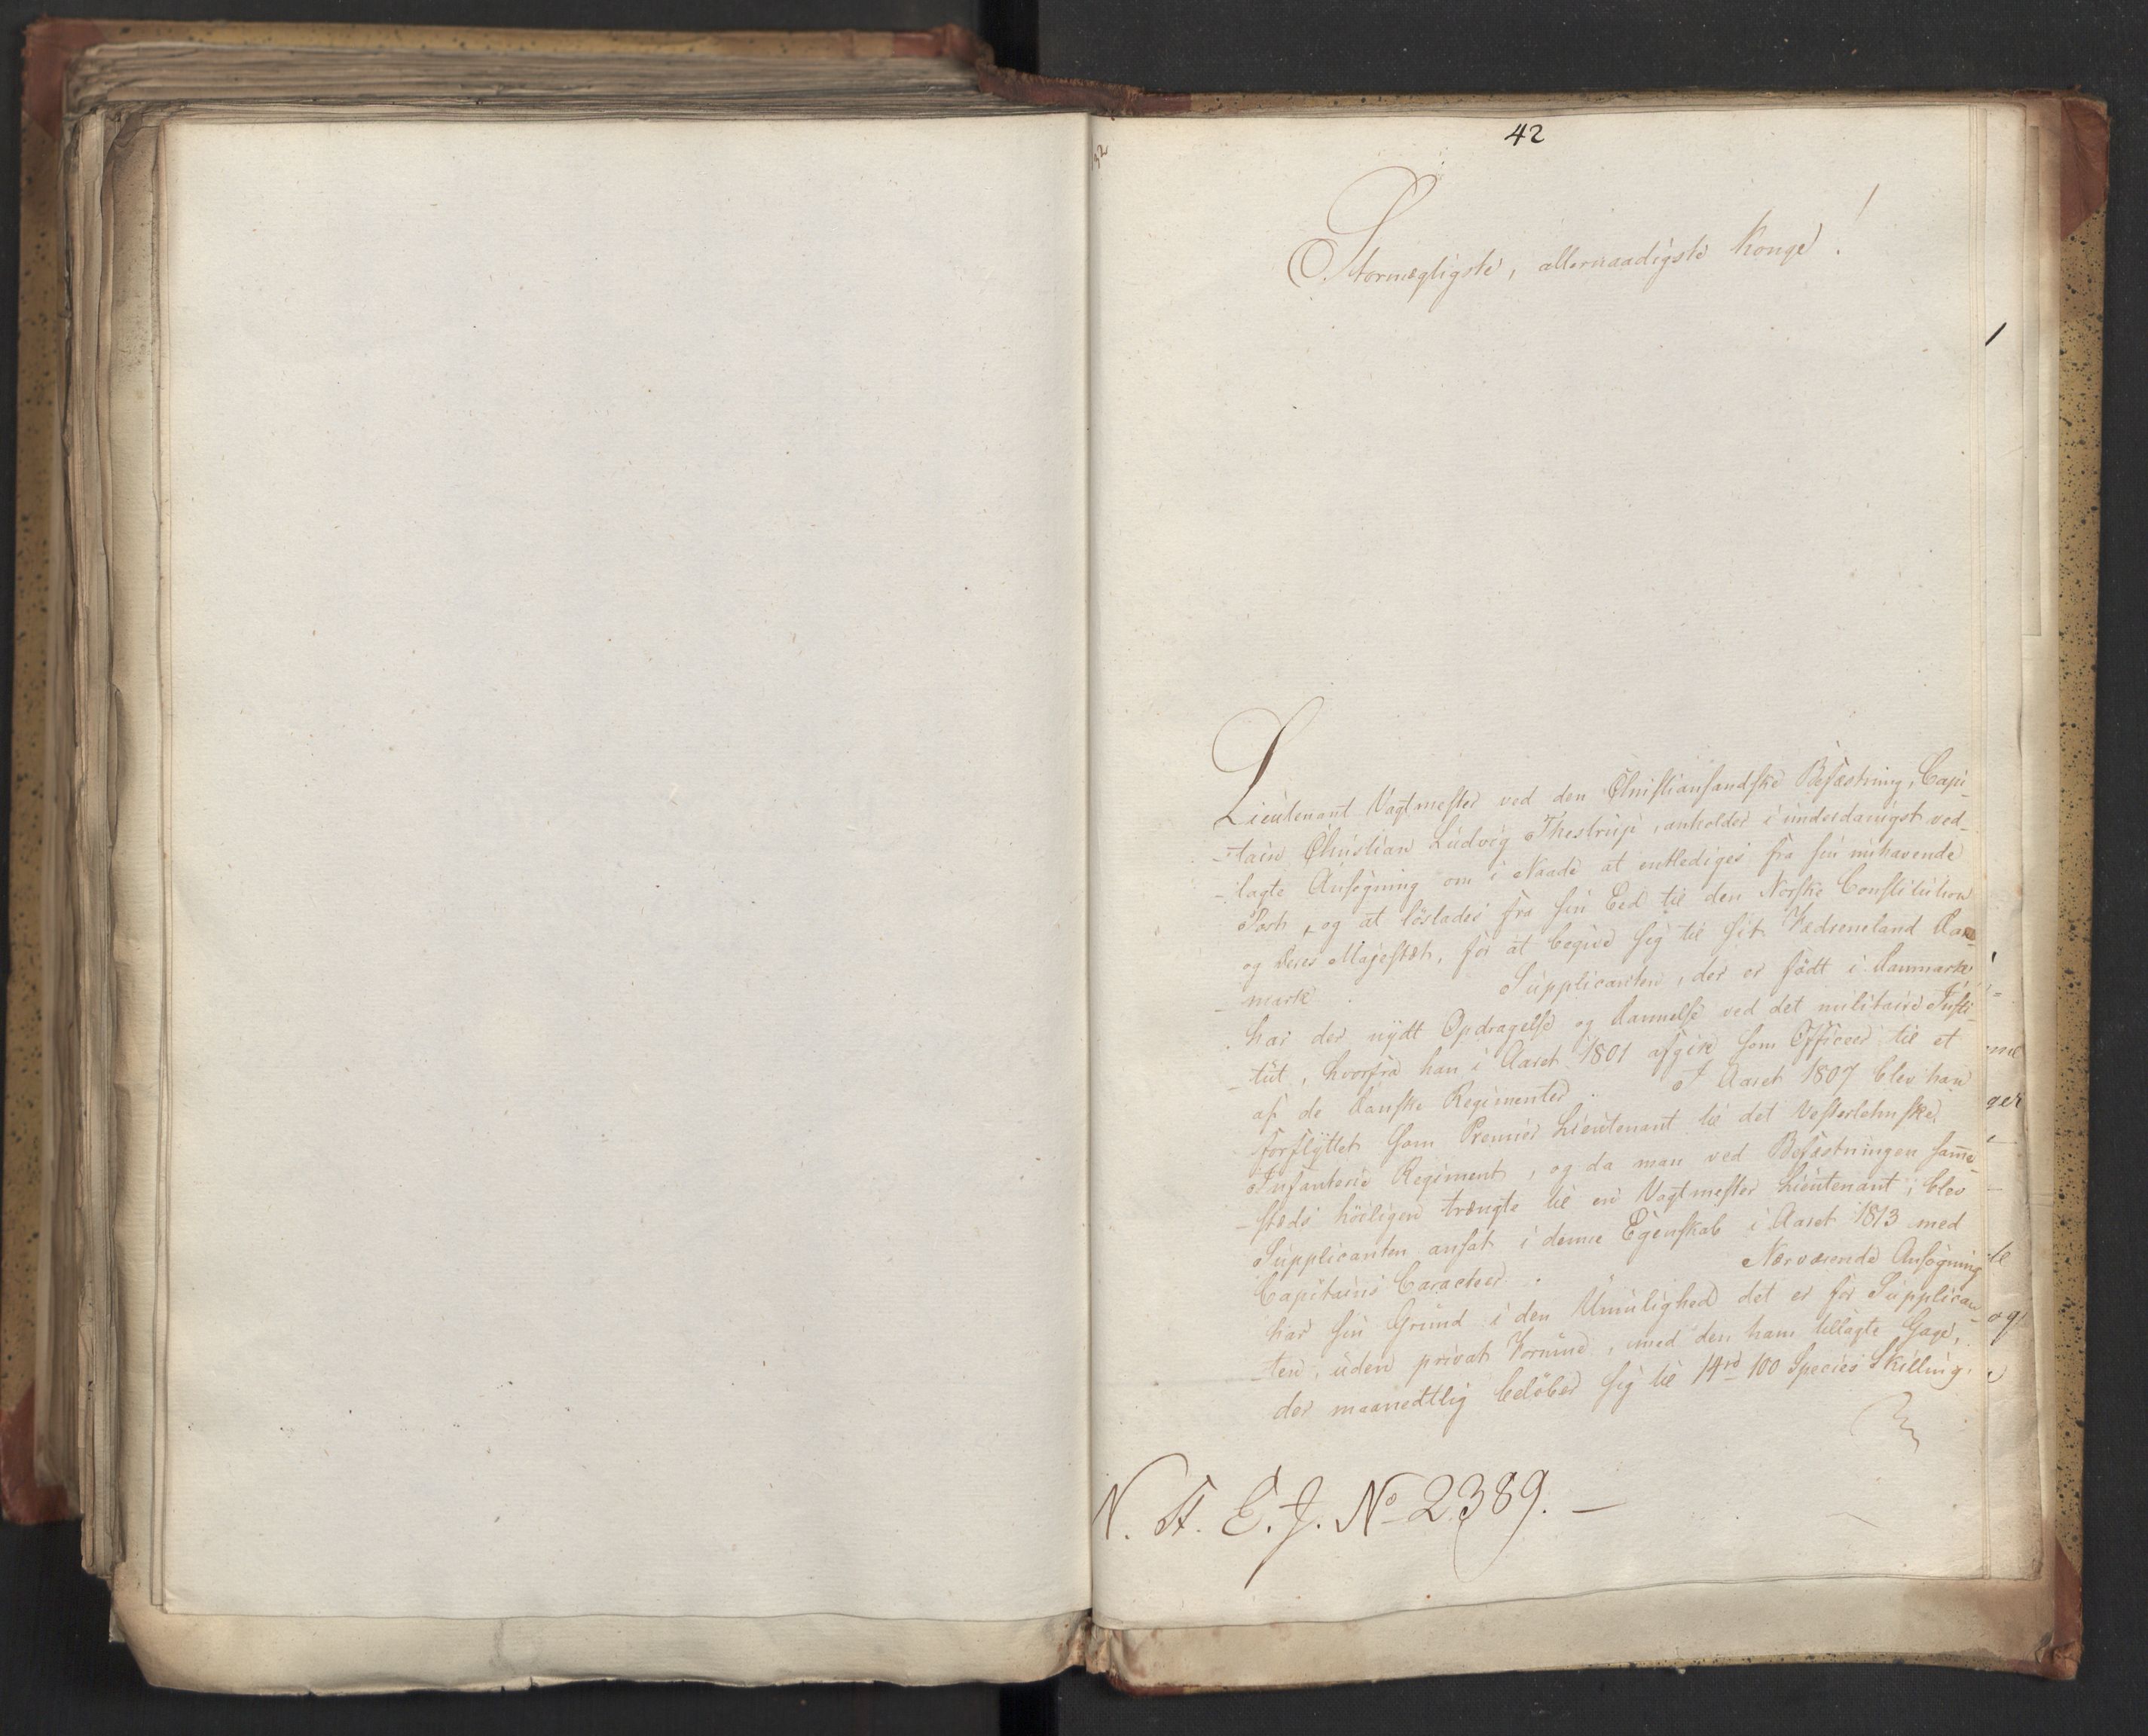 42
Stormægtigste, allernaadigste Konge!
Lieutenant Vagtmester ved den Christiansandske Befæstning, Capi-
-tain Christian Ludvig Thestrup, anholder i underdanigst ved-
-lagte Ansøgning om i Naade at entlediges fra sin inhavende
Post, og at løslades fra sin Eed til den Norske Constitution
og Deres Majestæt, for at begive sig til sit Fædreneland Dan-
-mark. Supplicanten, der er født i Danmark,
har der nydt Opdragelse og Dannelse ved det militaire Insti-
-tut, hvorfra han i Aaret 1801 afgik som Officeer til et
af de danske Regimenter. I Aaret 1807 blev han
forflyttet som Premier Lieutenant til det Vesterlehnske
Infanterie Regiment, og da man ved Befæstningen samme-
-steds høiligen trængte til en Vagtmester Lieutenant, blev
Supplicanten ansat i denne Egenskab i Aaret 1813 med
Capitains Caracteer. Nærværende Ansøgning
har sin Grund i den Umulighed det er for Supplican-
-ten, uden privat Formue, med den ham tillagte Gage,
der maanedtlig beløber sig til 14 rd 100 Species Skilling,
N. A. E. J. No 2389. —